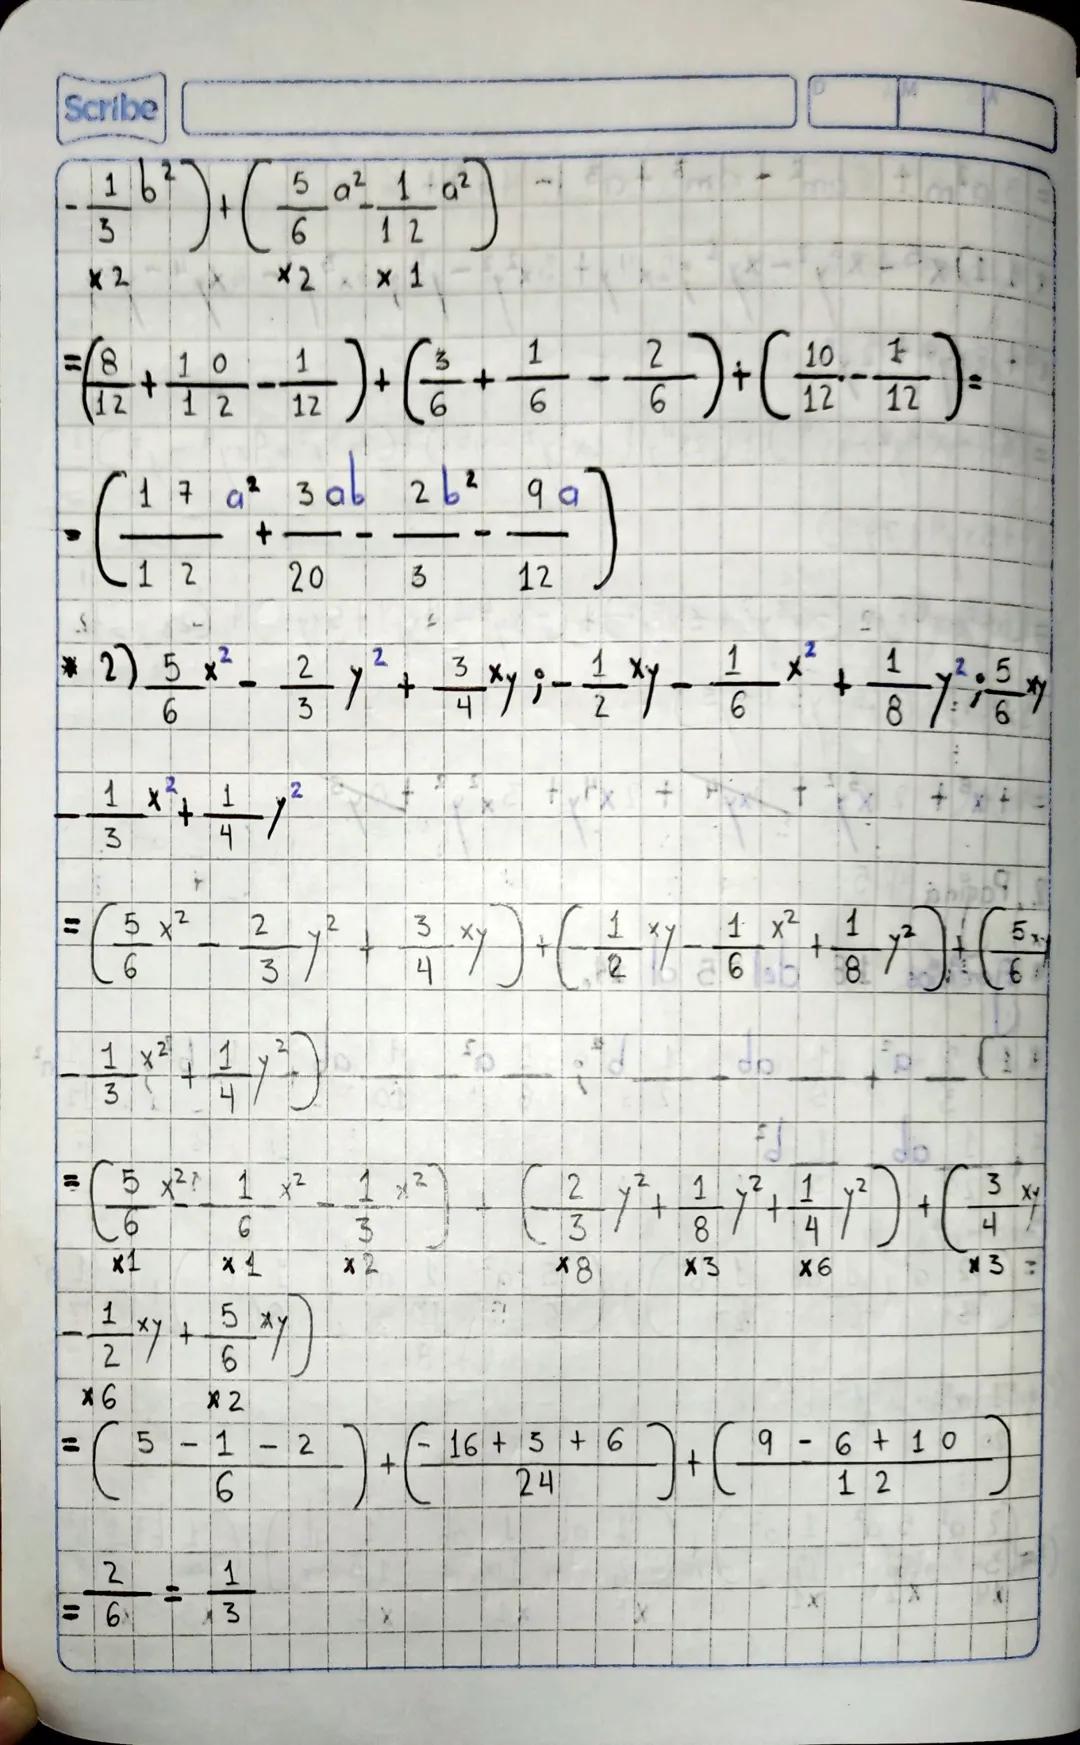 Scribe D M A
- 1/3 b² ) + ( 5/6 a² - 1/12 a² )
x2 x2 x1
= ( 8/12 + 10/12 - 1/12 ) + ( 3/6 + 1/6 - 2/6 ) + ( 10/12 - 1/12 ) =
= ( 17/12 a² + 3/20 ab - 2/3 b² - 9/12 a )
* 2) 5/6 x² - 2/3 y² + 3/4 xy ; - 1/2 xy - 1/6 x² + 1/8 y² ; 5/6 xy
- 1/3 x² + 1/4 y²
= ( 5/6 x² - 2/3 y² + 3/4 xy ) + ( - 1/2 xy - 1/6 x² + 1/8 y² ) + ( 5/6 xy
- 1/3 x² + 1/4 y² )
= ( 5/6 x² - 1/6 x² - 1/3 x² ) + ( - 2/3 y² + 1/8 y² + 1/4 y² ) + ( 3/4 xy
x1 x1 x2 x8 x3 x6 x3 =
- 1/2 xy + 5/6 xy )
x6 x2
= ( 5 - 1 - 2 / 6 ) + ( - 16 + 3 + 6 / 24 ) + ( 9 - 6 + 10 / 12 )
= 2/6 = 1/3